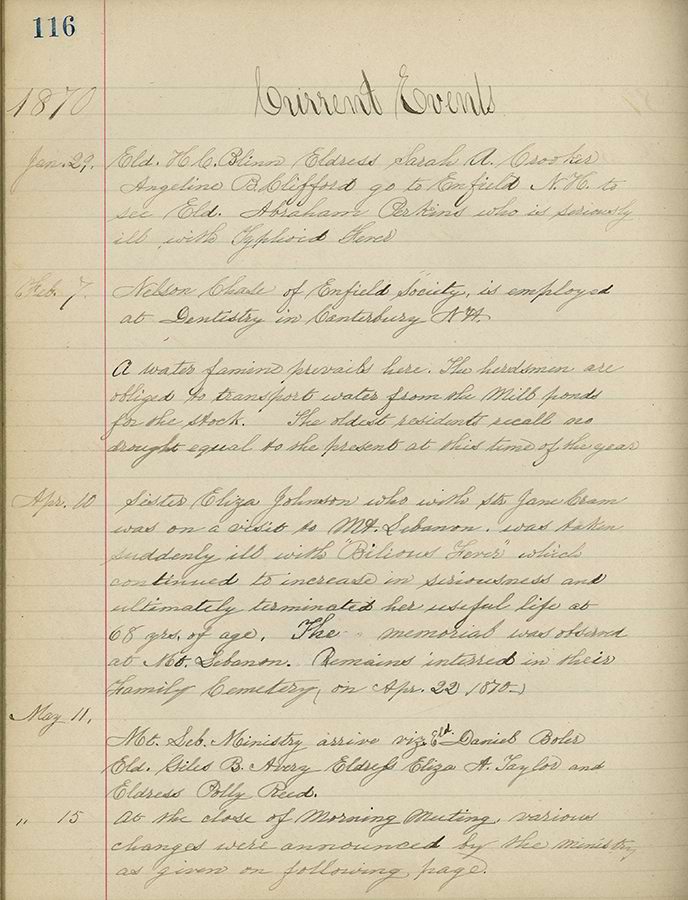 116
1870 Current Events
Jan. 29. Eld. H. C. Blinn Eldress Sarah A. Crooker
Angeline B. Clifford go to Enfield N. H. to
see Eld. Abraham Perkins who is seriously
ill with Typhoid Fever
Feb. 7. Nelson Chase of Enfield Society, is employed
at Dentistry in Canterbury N.H.
A water famine prevails here. The herdsmen are
obliged to transport water from the Mill ponds
for the stock. The oldest residents recall no
drought equal to the present at this time of the year
Apr. 10 Sister Eliza Johnson who with Str Jane Cram
was on a visit to Mt. Lebanon. was taken
suddenly ill with "Bilious Fever" which
continued to increase in seriousness and
ultimately terminated her useful life at
68 yrs. of age. The " memorial was observed
at Mt. Lebanon. Remains interred in their
Family Cemetery (on Apr. 22 1870-)
May 11.
Mt. Leb. Ministry arrive viz. Eld. Daniel Boler
Eld. Giles B. Avery Eldress Eliza A. Taylor and
Eldress Polly Reed.
" 15 At the close of Morning Meeting, various
changes were announced by the ministry
as given on following page.